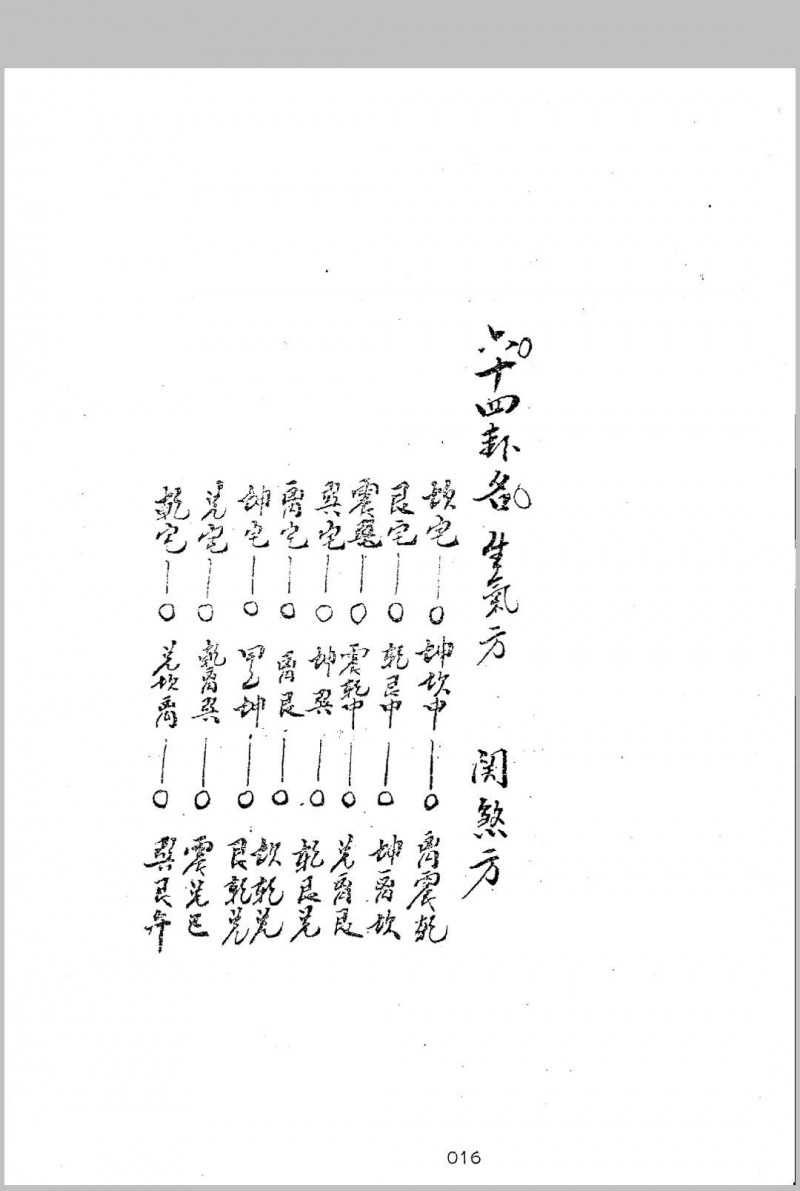 六十四卦名 生氣方 関煞方
坎宅 坤坎中 离震乾
艮宅 乾艮中 坤离坎
震宅 震乾中 兑离艮
巽宅 坤巽 乾艮兑
离宅 离艮 坎乾兑
坤宅 坤 艮乾兑
兑宅 乾离巽 震兑巳
乾宅 兑坎离 巽艮午
016